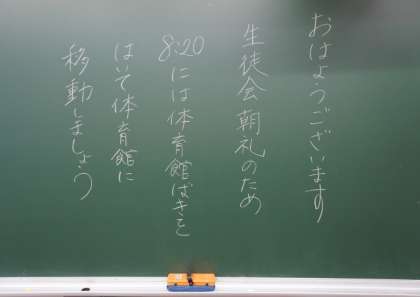 おはようございます
生徒会朝礼のため
8:20には体育館ばきを
はいて体育館に
移動しましょう